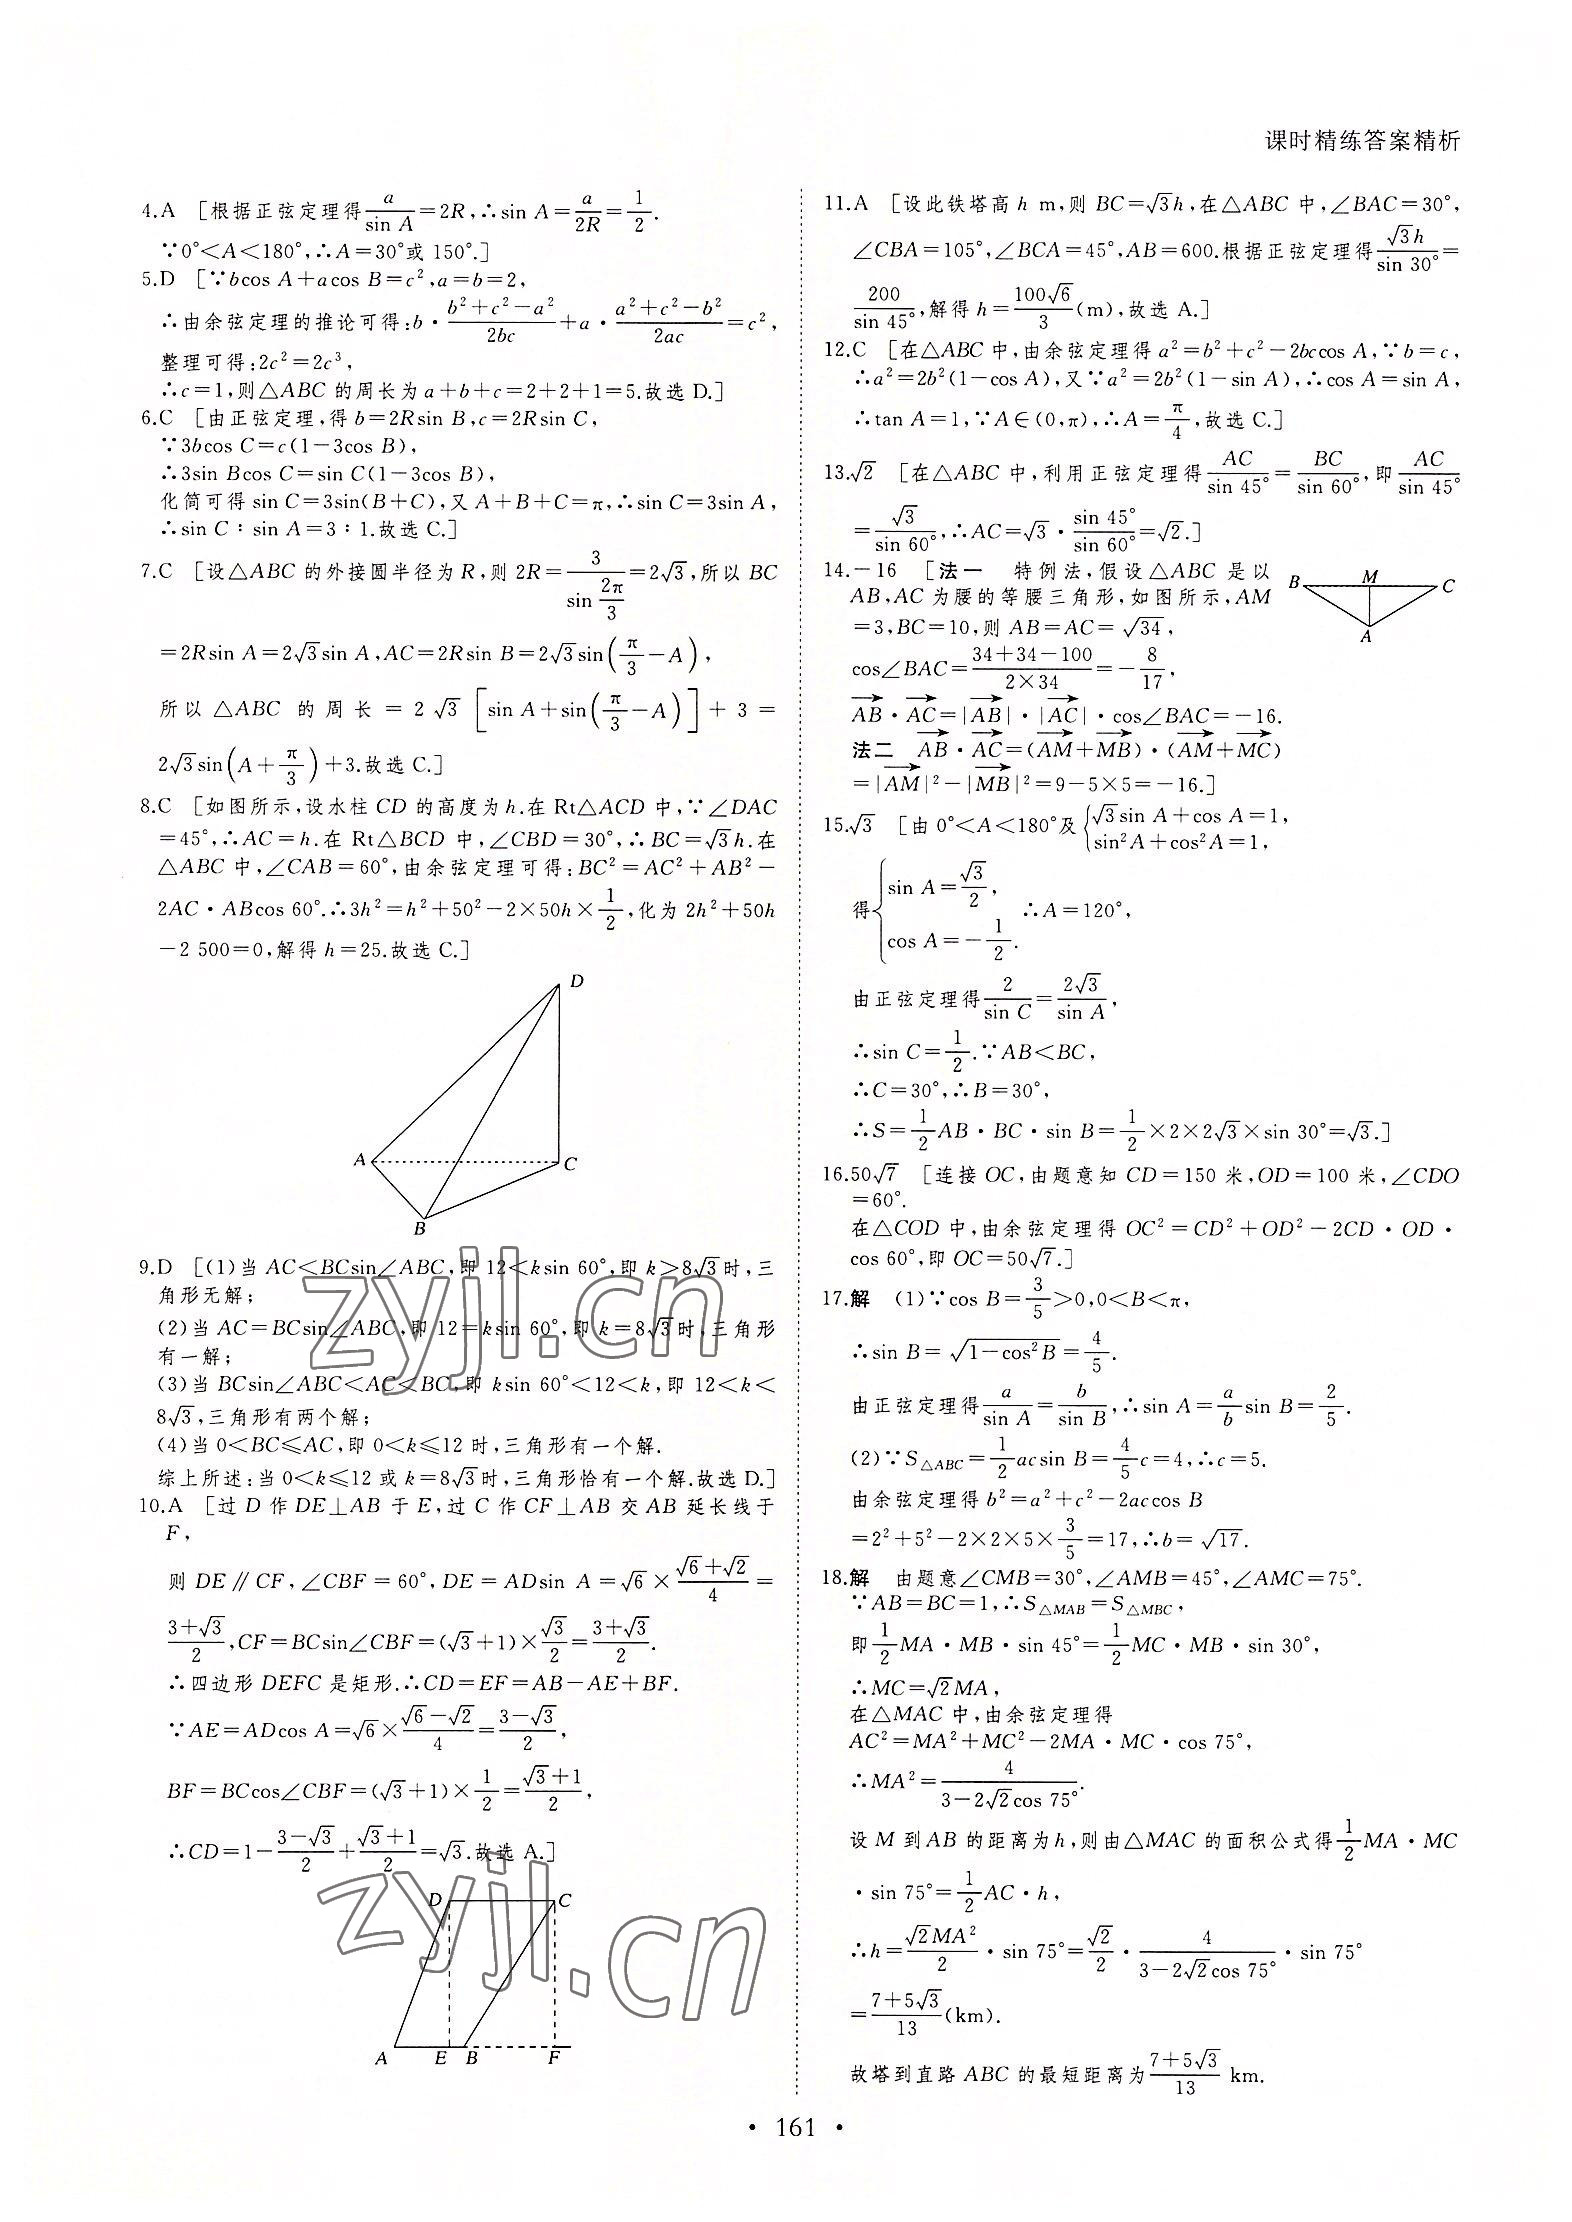 课时精练答案精析
4.A [根据正弦定理得a/sin A=2R,∴sin A=a/2R=1/2.
∵0°<A<180°,∴A=30°或 150°.]
5.D [∵bcos A+acos B=c²,a=b=2,
∴由余弦定理的推论可得:b·(b²+c²-a²)/2bc+a·(a²+c²-b²)/2ac=c²,
整理可得:2c²=2c³,
∴c=1,则△ABC 的周长为 a+b+c=2+2+1=5.故选 D.]
6.C [由正弦定理,得 b=2Rsin B,c=2Rsin C,
∵3bcos C=c(1-3cos B),
∴3sin Bcos C=sin C(1-3cos B),
化简可得 sin C=3sin(B+C),又 A+B+C=π,∴sin C=3sin A,
∴sin C∶sin A=3∶1.故选 C.]
7.C [设△ABC 的外接圆半径为 R,则 2R=3/sin(2π/3)=2√3,所以 BC
=2Rsin A=2√3sin A,AC=2Rsin B=2√3sin(π/3-A),
所以 △ABC 的周长=2√3[sin A+sin(π/3-A)]+3=
2√3sin(A+π/3)+3.故选 C.]
8.C [如图所示,设水柱 CD 的高度为 h.在 Rt△ACD 中,∵∠DAC
=45°,∴AC=h.在 Rt△BCD 中,∠CBD=30°,∴BC=√3h.在
△ABC 中,∠CAB=60°,由余弦定理可得:BC²=AC²+AB²-
2AC·ABcos 60°.∴3h²=h²+50²-2×50h×1/2,化为 2h²+50h
-2 500=0,解得 h=25.故选 C.]
D
A
C
B
9.D [(1)当 AC<BCsin∠ABC,即 12<ksin 60°,即 k>8√3时,三
角形无解;
(2)当 AC=BCsin∠ABC,即 12=ksin 60°,即 k=8√3时,三角形
有一解;
(3)当 BCsin∠ABC<AC<BC,即 ksin 60°<12<k,即 12<k<
8√3,三角形有两个解;
(4)当 0<BC≤AC,即 0<k≤12 时,三角形有一个解.
综上所述:当 0<k≤12 或 k=8√3时,三角形恰有一个解.故选 D.]
10.A [过 D 作 DE⊥AB 于 E,过 C 作 CF⊥AB 交 AB 延长线于
F,
则 DE∥CF,∠CBF=60°,DE=ADsin A=√6×(√6+√2)/4=
(3+√3)/2,CF=BCsin∠CBF=(√3+1)×√3/2=(3+√3)/2.
∴四边形 DEFC 是矩形.∴CD=EF=AB-AE+BF.
∵AE=ADcos A=√6×(√6-√2)/4=(3-√3)/2,
BF=BCcos∠CBF=(√3+1)×1/2=(√3+1)/2,
∴CD=1-(3-√3)/2+(√3+1)/2=√3.故选 A.]
D C
A E B F
11.A [设此铁塔高 h m,则 BC=√3h,在△ABC 中,∠BAC=30°,
∠CBA=105°,∠BCA=45°,AB=600.根据正弦定理得√3h/sin 30°=
200/sin 45°,解得 h=100√6/3(m),故选 A.]
12.C [在△ABC 中,由余弦定理得 a²=b²+c²-2bccos A,∵b=c,
∴a²=2b²(1-cos A),又∵a²=2b²(1-sin A),∴cos A=sin A,
∴tan A=1,∵A∈(0,π),∴A=π/4,故选 C.]
13.√2 [在△ABC 中,利用正弦定理得AC/sin 45°=BC/sin 60°,即AC/sin 45°
=√3/sin 60°,∴AC=√3·sin 45°/sin 60°=√2.]
14.-16 [法一 特例法,假设△ABC 是以
AB,AC 为腰的等腰三角形,如图所示,AM
=3,BC=10,则 AB=AC=√34,
B M C
A
cos∠BAC=(34+34-100)/(2×34)=-8/17,
AB→·AC→=|AB→|·|AC→|·cos∠BAC=-16.
法二 AB→·AC→=(AM→+MB→)·(AM→+MC→)
=|AM→|²-|MB→|²=9-5×5=-16.]
15.√3 [由 0°<A<180°及{√3sin A+cos A=1,
sin²A+cos²A=1,
得{sin A=√3/2,
cos A=-1/2. ∴A=120°,
由正弦定理得2/sin C=2√3/sin A,
∴sin C=1/2.∵AB<BC,
∴C=30°,∴B=30°,
∴S=1/2AB·BC·sin B=1/2×2×2√3×sin 30°=√3.]
16.50√7 [连接 OC,由题意知 CD=150 米,OD=100 米,∠CDO
=60°.
在△COD 中,由余弦定理得 OC²=CD²+OD²-2CD·OD·
cos 60°,即 OC=50√7.]
17.解 (1)∵cos B=3/5>0,0<B<π,
∴sin B=√(1-cos²B)=4/5.
由正弦定理得a/sin A=b/sin B,∴sin A=a/b sin B=2/5.
(2)∵S△ABC=1/2acsin B=4/5c=4,∴c=5.
由余弦定理得 b²=a²+c²-2accos B
=2²+5²-2×2×5×3/5=17,∴b=√17.
18.解 由题意∠CMB=30°,∠AMB=45°,∠AMC=75°.
∵AB=BC=1,∴S△MAB=S△MBC,
即1/2MA·MB·sin 45°=1/2MC·MB·sin 30°,
∴MC=√2MA,
在△MAC 中,由余弦定理得
AC²=MA²+MC²-2MA·MC·cos 75°,
∴MA²=4/(3-2√2cos 75°).
设 M 到 AB 的距离为 h,则由△MAC 的面积公式得1/2MA·MC
·sin 75°=1/2AC·h,
∴h=√2MA²/2·sin 75°=√2/2·4/(3-2√2cos 75°)·sin 75°
=(7+5√3)/13(km).
故塔到直路 ABC 的最短距离为(7+5√3)/13 km.
zyjl.cn
zyjl.cn
• 161 •